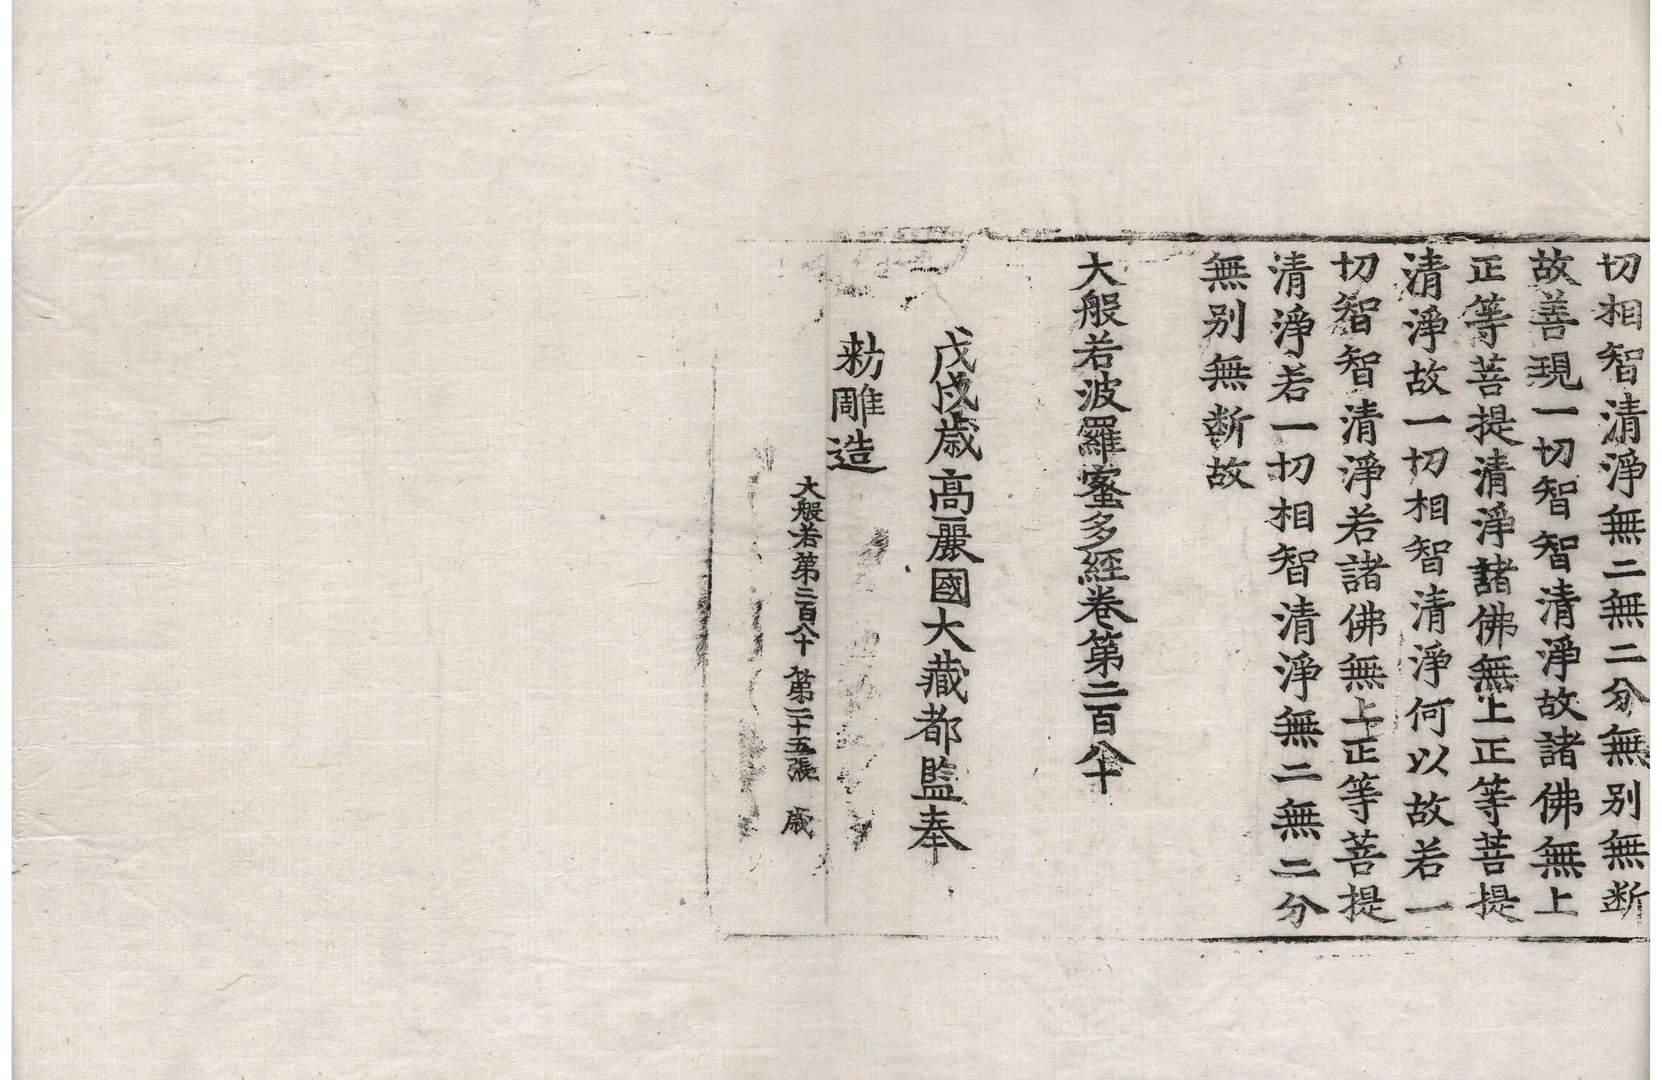 切相智清淨無二無二分無別無断
故善現一切智智清淨故諸佛無上
正等菩提清淨諸佛無上正等菩提
清淨故一切相智清淨何以故若一
切智智清淨若諸佛無上正等菩提
清淨若一切相智清淨無二無二分
無別無断故
大般若波羅蜜多經卷第二百八十
戊戌歲高麗國大藏都監奉
勑雕造
大般若第二百八十 第二十五張 歲